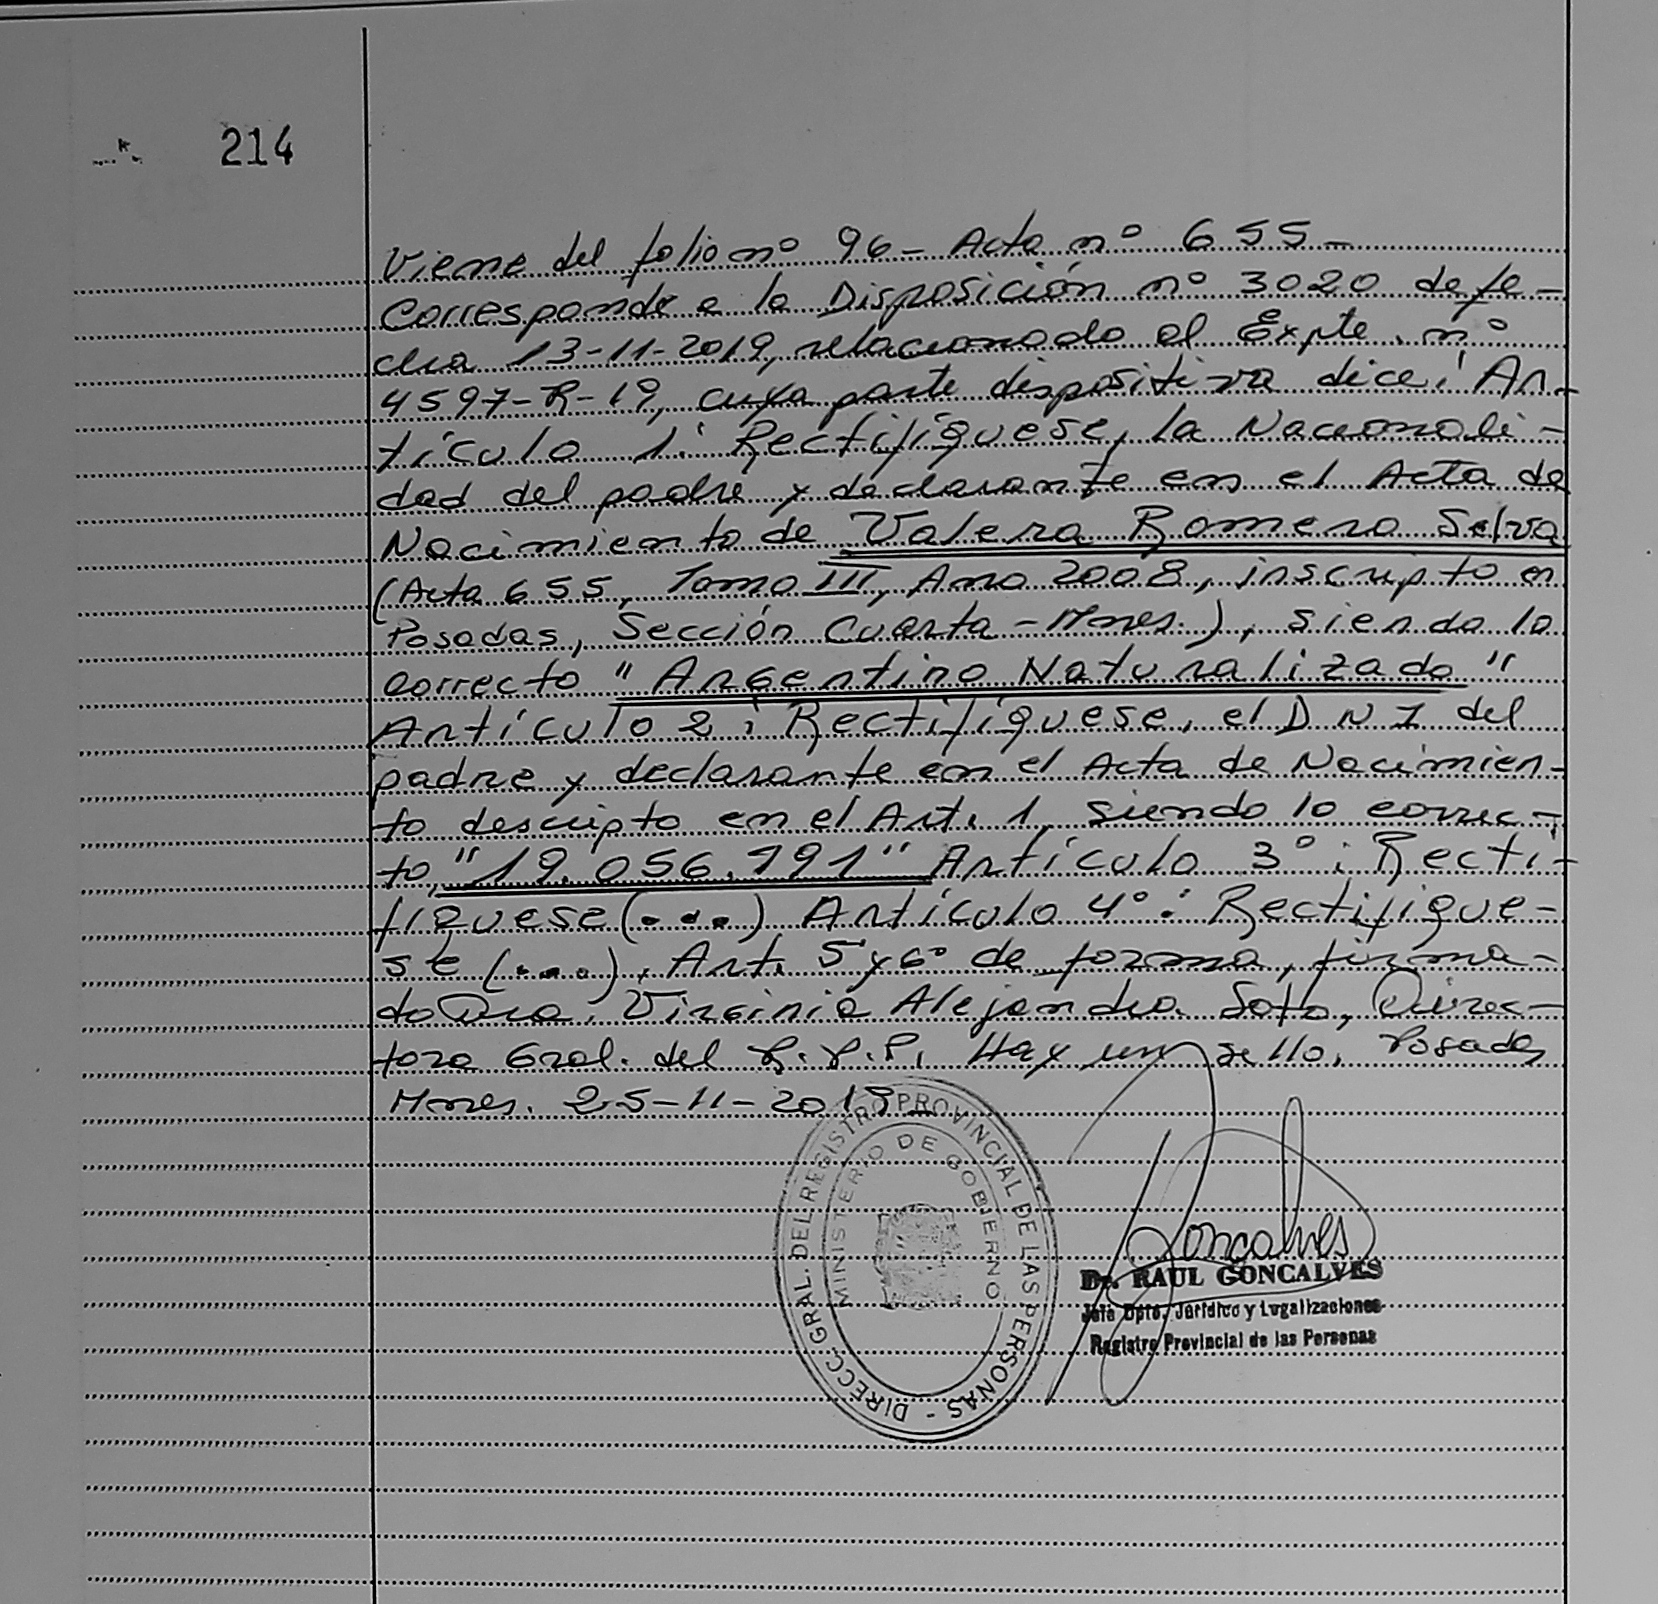 214
Viene del folio nº 96 - Acta nº 655 -
Corresponde a la Disposición nº 3020 de fe-
cha 13-11-2019, relacionado al Expte. nº
4597-R-19, cuya parte dispositiva dice: Ar-
tículo 1: Rectifíquese, la Nacionali-
dad del padre y declarante en el Acta de
Nacimiento de Valera Romero Selva
(Acta 655, Tomo III, Año 2008, inscripto en
Posadas, Sección Cuarta - Mnes.), siendo lo
correcto "Argentino Naturalizado"
Artículo 2: Rectifíquese, el DNI del
padre y declarante en el Acta de Nacimien-
to descripto en el Art. 1, siendo lo correc-
to, "19.056.791" Artículo 3º: Recti-
fíquese (...) Artículo 4º: Rectifíque-
se (...), Art. 5 y 6º de forma, firma-
do Dra. Virginia Alejandra Soto, Direc-
tora Gral. del R.P.P. Hay un sello. Posadas
Mnes. 25-11-2019
DIRECC. GRAL. DEL REGISTRO PROVINCIAL DE LAS PERSONAS -
MINISTERIO DE GOBIERNO
Goncalves
Dr. RAUL GONCALVES
Jefe Dpto. Jurídico y Legalizaciones
Registro Provincial de las Personas